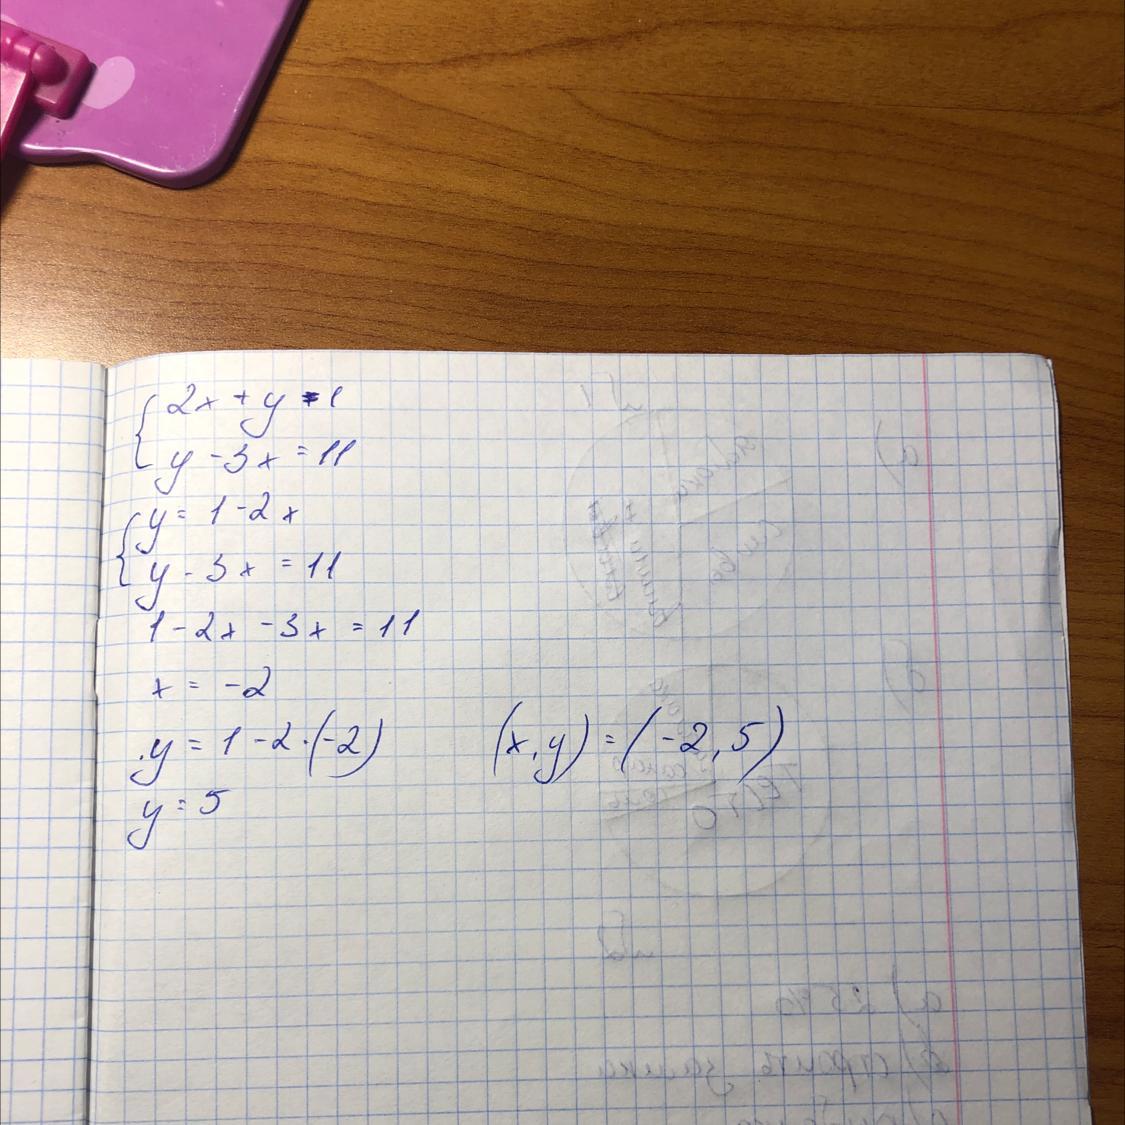 2x + y = 1
y - 3x = 11
y = 1 - 2x
y - 3x = 11
1 - 2x - 3x = 11
x = -2
y = 1 - 2 · (-2) (x, y) = (-2, 5)
y = 5